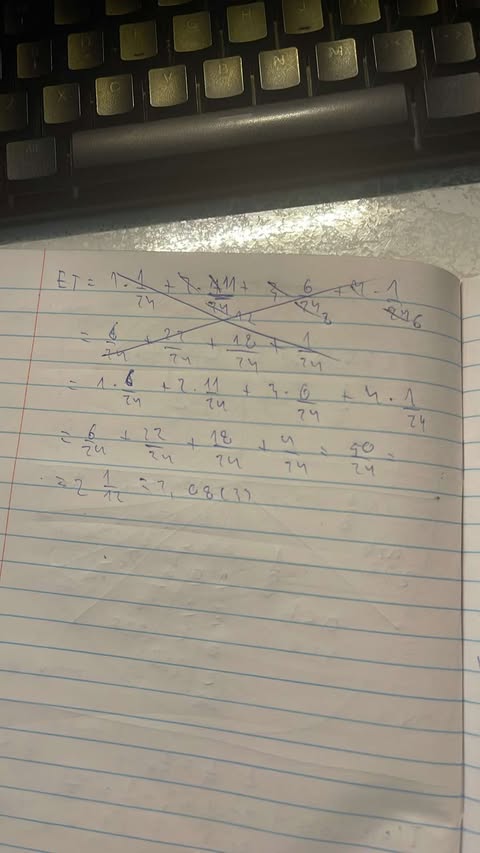 X C V B N M
ET = 1 · 1/24 + 2 · 11/24 + 3 · 6/24 + 4 · 1/24
= 6/24 + 22/24 + 18/24 + 1/24
= 1 · 6/24 + 2 · 11/24 + 3 · 6/24 + 4 · 1/24
= 6/24 + 22/24 + 18/24 + 4/24 = 50/24 =
= 2 1/12 = 2,08(3)